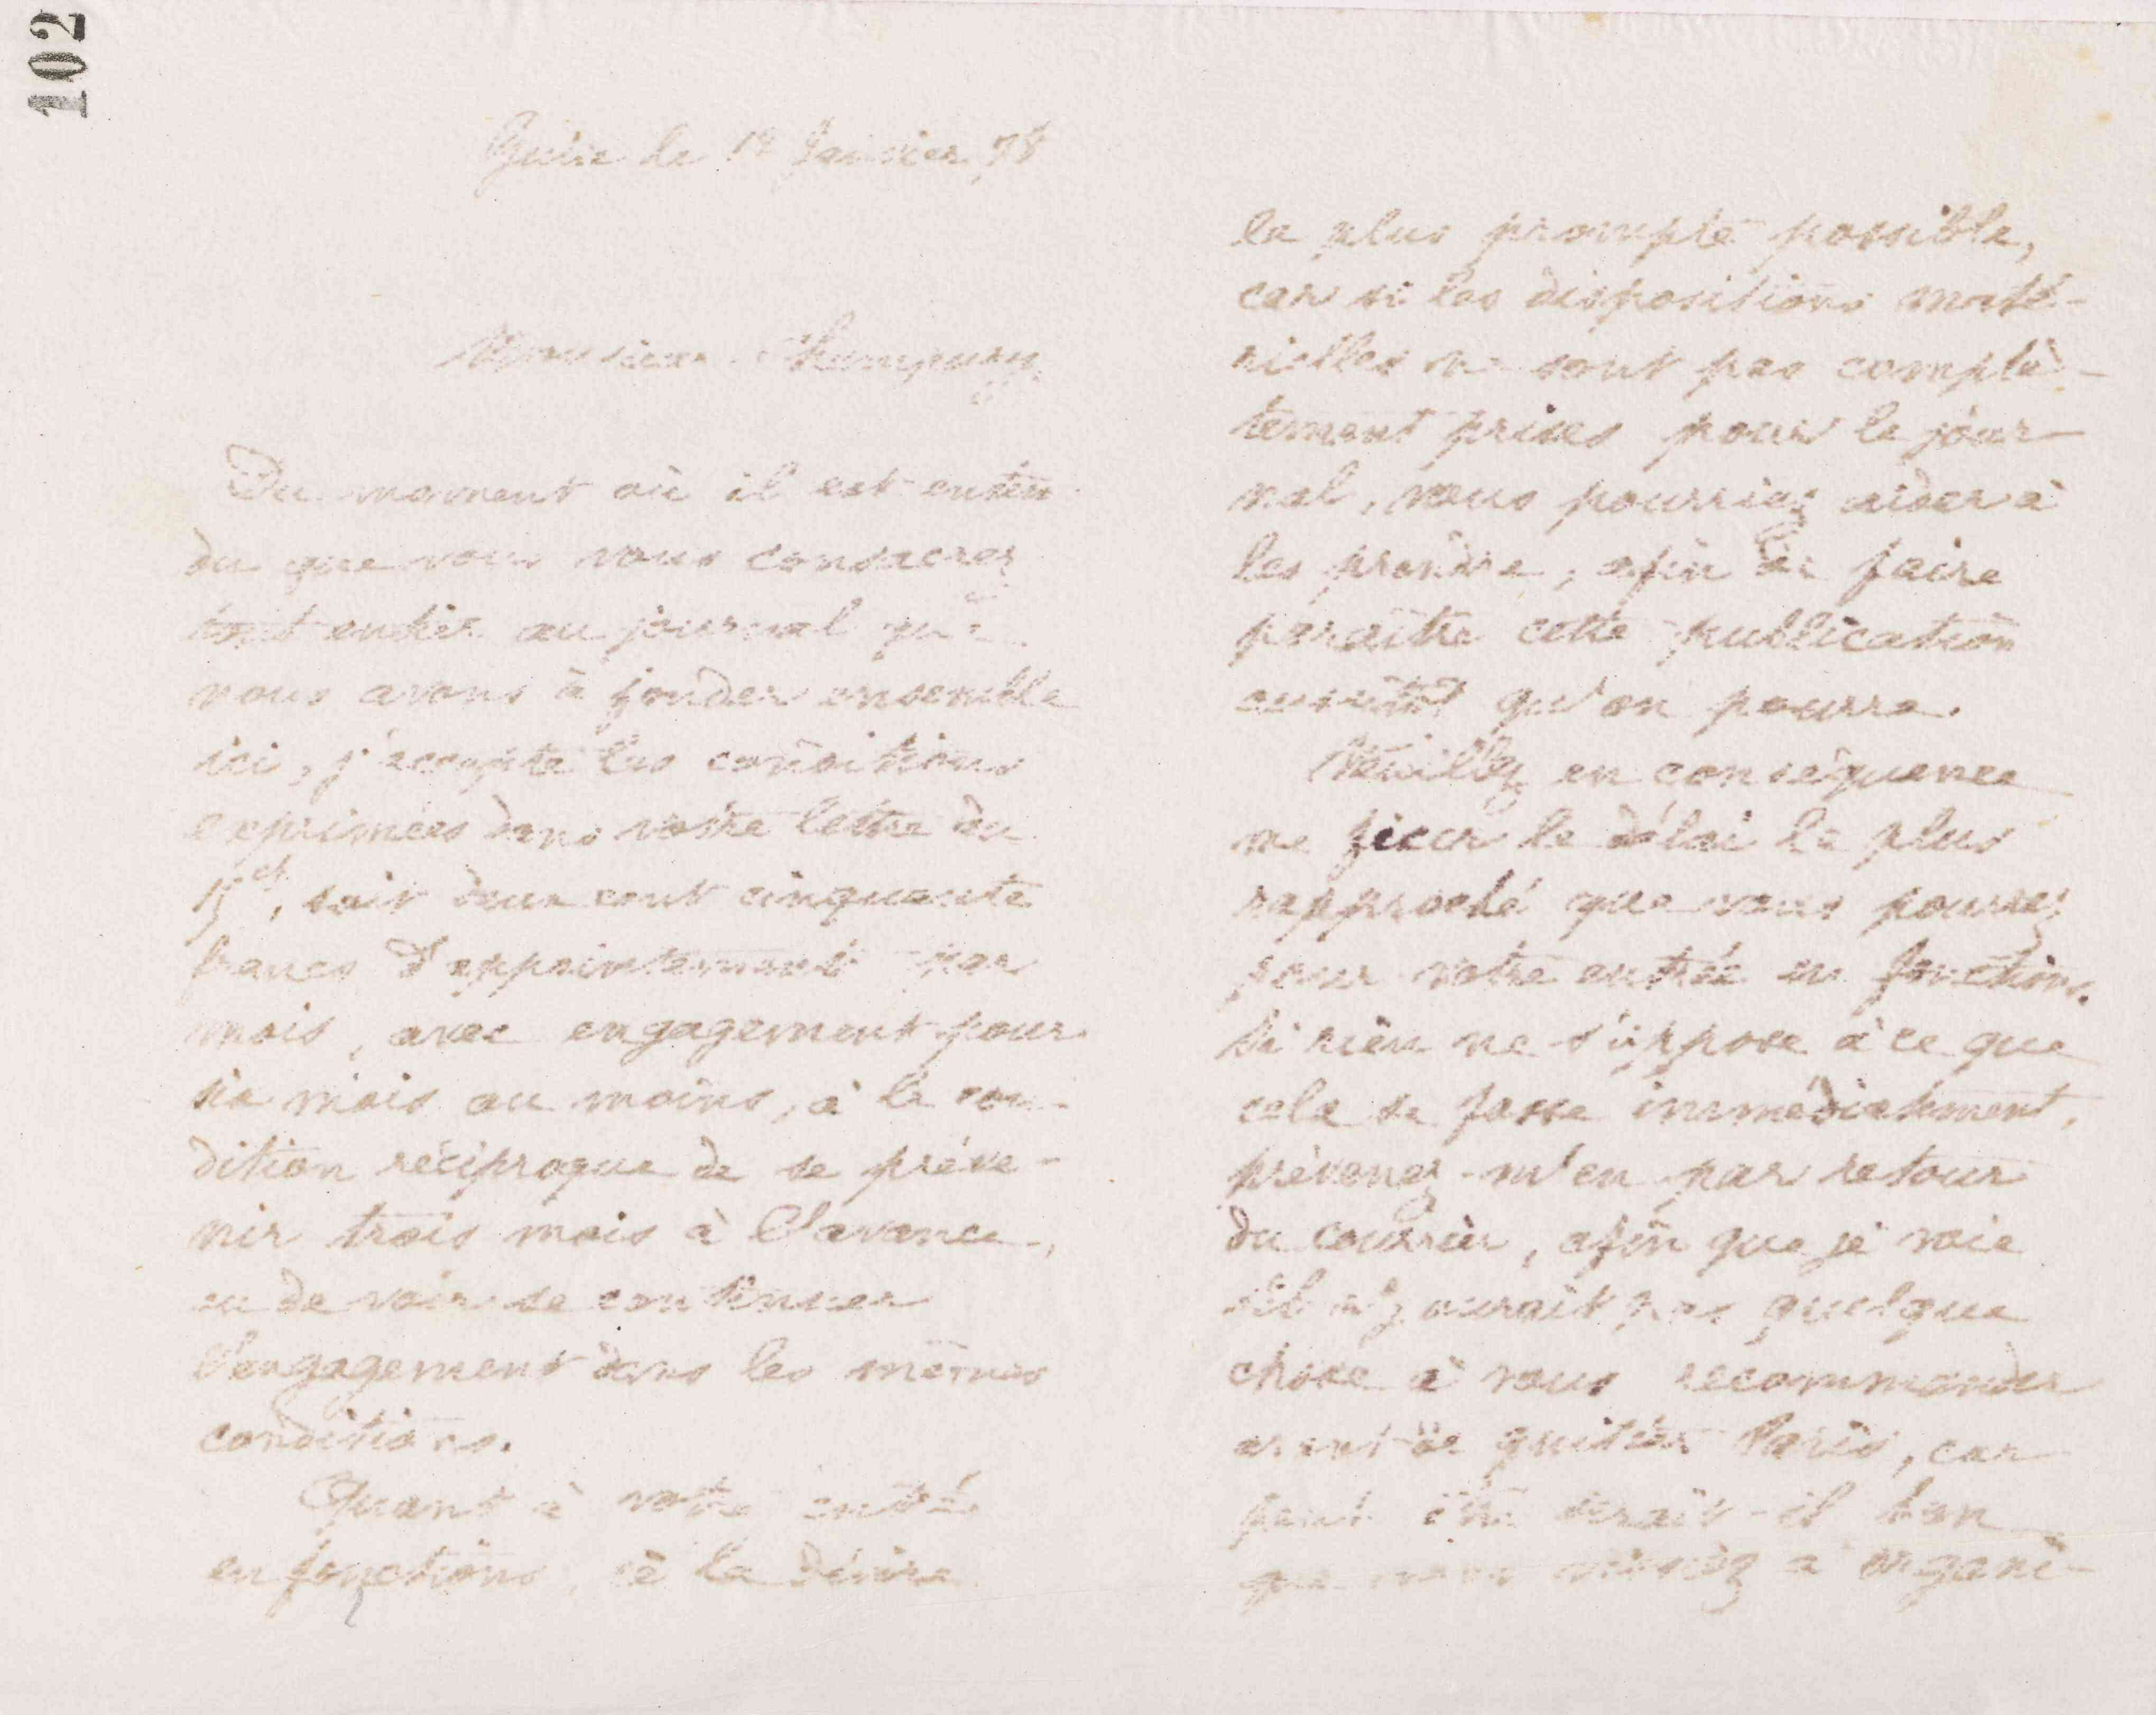 102
Guise le 18 Janvier 78
Monsieur Champury
Du moment où il est enten
du que vous vous consacrez
tout entier au journal que
nous avons à fonder ensemble
ici, j'accepte les conditions
exprimées dans votre lettre du
15 ct, soit deux cent cinquante
francs d'appointements par
mois, avec engagement pour
six mois au moins, à la con-
dition réciproque de se préve-
nir trois mois à l'avance,
ou de voir se continuer
l'engagement dans les mêmes
conditions.
Quant à votre entrée
en fonctions, je la désire
la plus prompte possible,
car si les dispositions maté-
rielles ne sont pas complè-
tement prises pour le jour-
nal, vous pourriez aider à
les prendre, afin de faire
paraître cette publication
aussitôt qu'on pourra.
Veuillez en conséquence
me fixer le délai le plus
rapproché que vous pourrez
pour votre entrée en fonctions.
Si rien ne s'oppose à ce que
cela se fasse immédiatement,
prévenez-m'en par retour
du courrier, afin que je voie
s'il n'y aurait pas quelque
chose à vous recommander
avant de quitter Paris, car
peut être serait-il bon
que vous à organi-